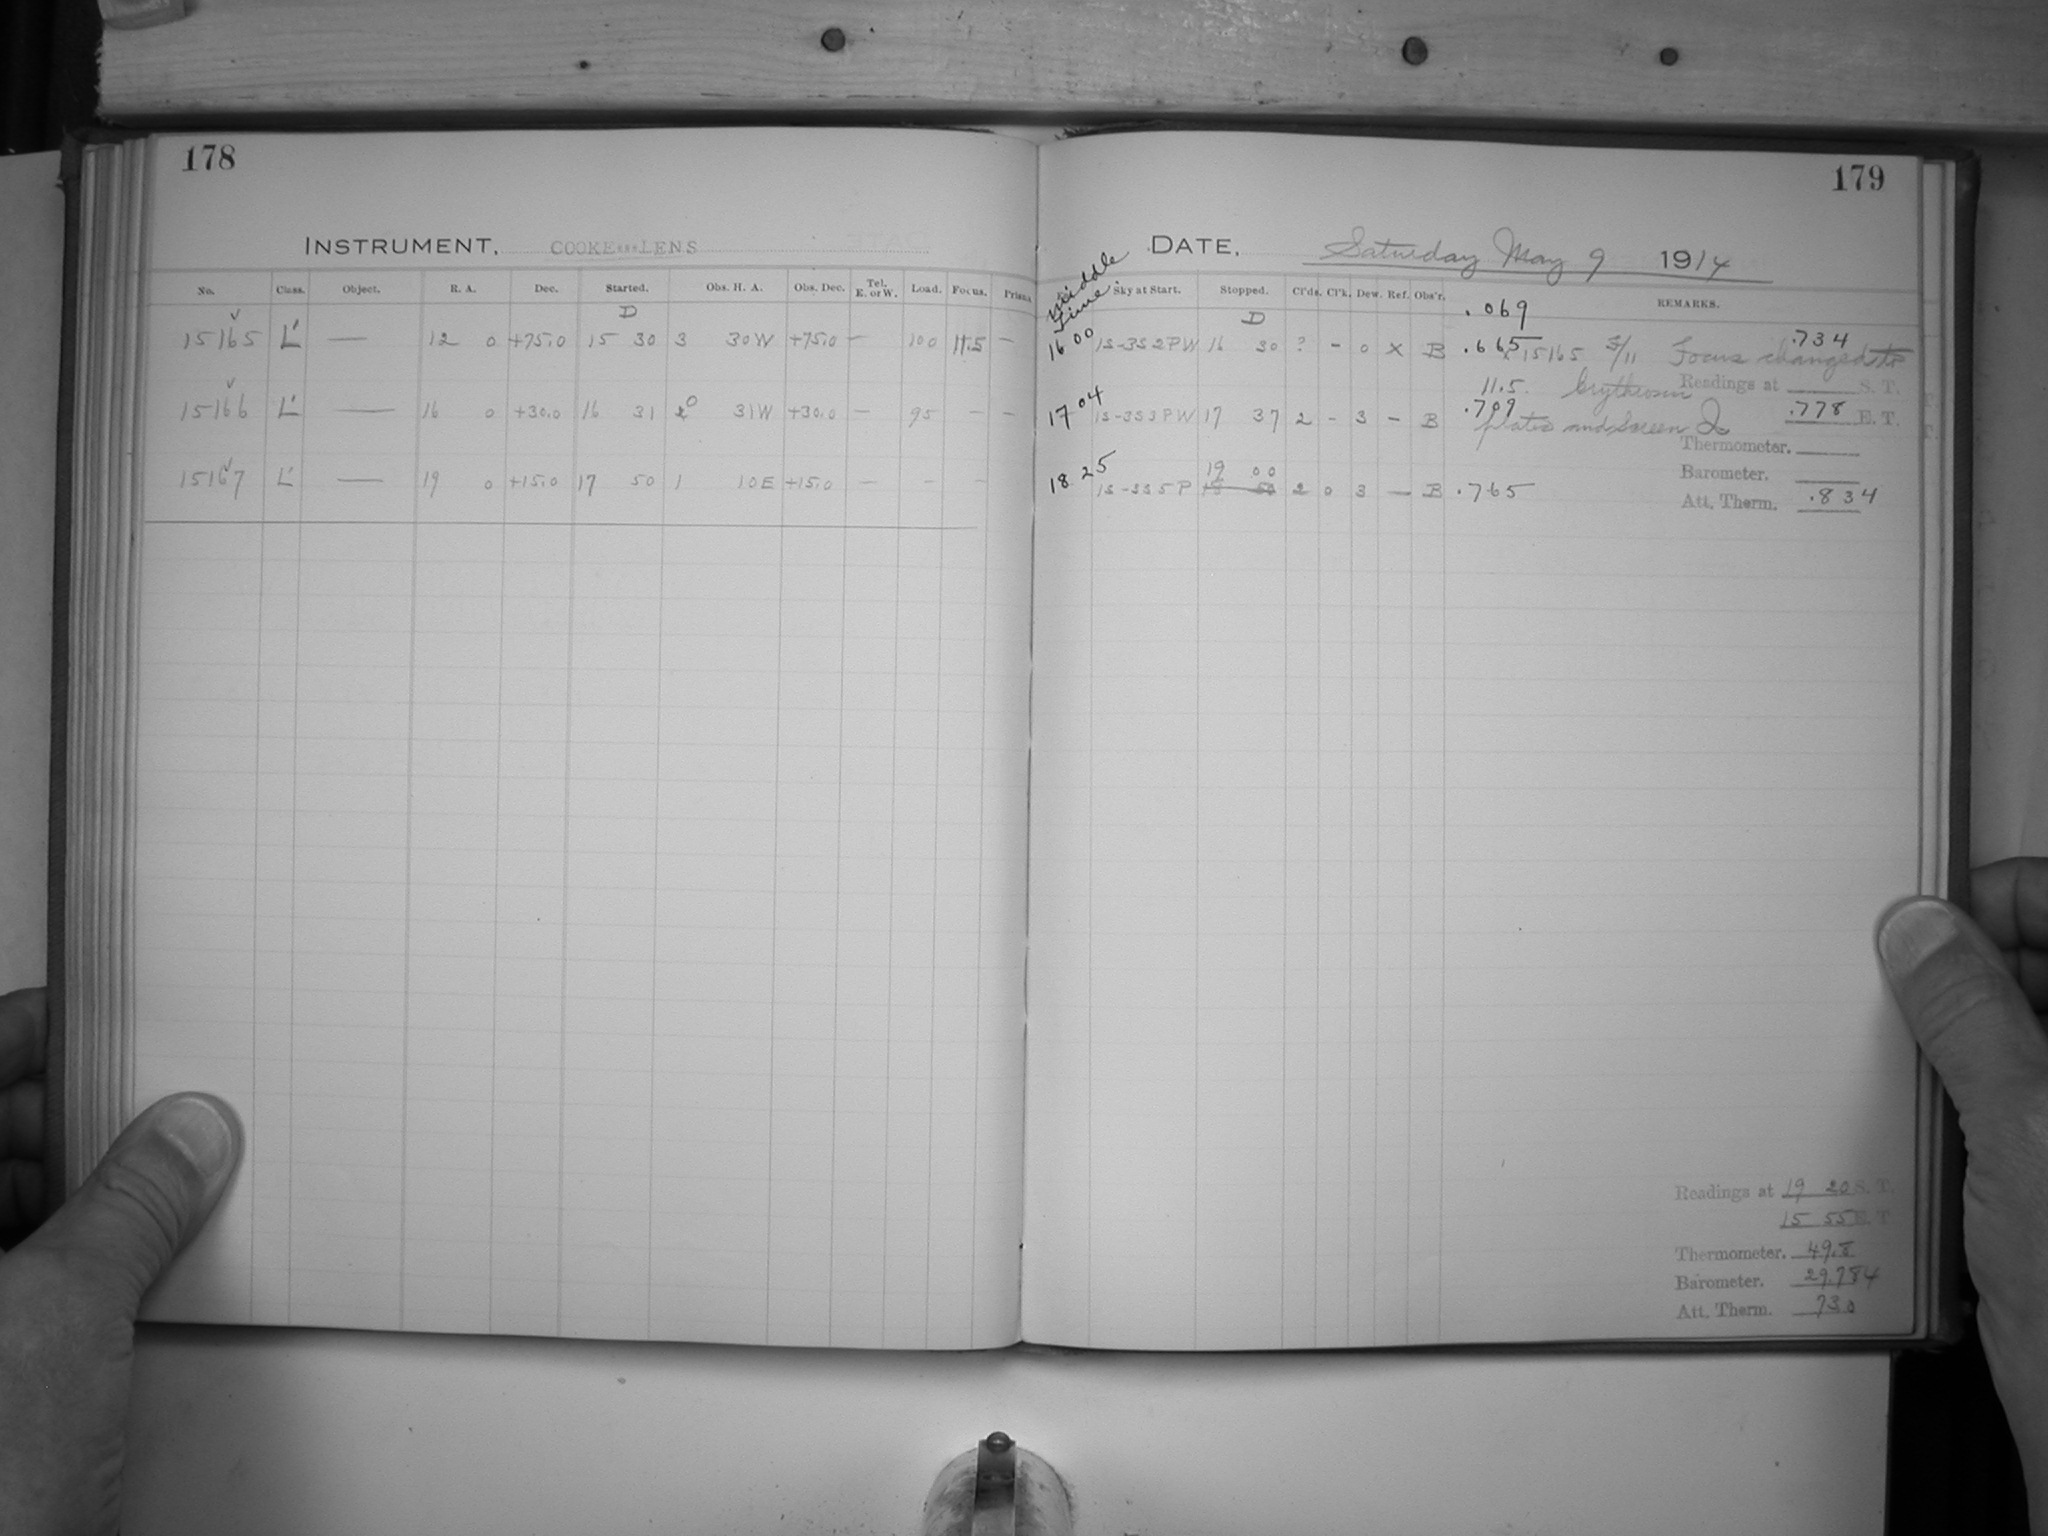 178
179
INSTRUMENT, COOKE***LENS
DATE, Saturday May 9 1914
No. Class. Object. R. A. Dec. Started. Obs. H. A. Obs. Dec. Tel. E. or W. Load. Focus. Prism
Middle Time Sky at Start. Stopped. Cl'ds. Cl'k. Dew. Ref. Obs'r. REMARKS.
.069
D
D
15165 L' — 12 0 +75.0 15 30 3 30W +75.0 — 100 11.5 —
16 00 1S-3S2PW 16 30 ? - 0 X B .665 15165 Focus changed to .734
11.5 Erythrosin
Readings at S. T.
15166 L' — 16 0 +30.0 16 31 0 31W +30.0 — 95 - —
17 04 1S-3S3PW 17 37 2 - 3 - B .709 plates and Screen
.778 E. T.
Thermometer.
Barometer.
15167 L' — 19 0 +15.0 17 50 1 10E +15.0 — - -
18 25 1S-3S5P 19 00 2 0 3 — B .765
Att. Therm. .834
Readings at 19 20 S. T.
15 55 E. T.
Thermometer. 49.5
Barometer. 29.784
Att. Therm. 73.0